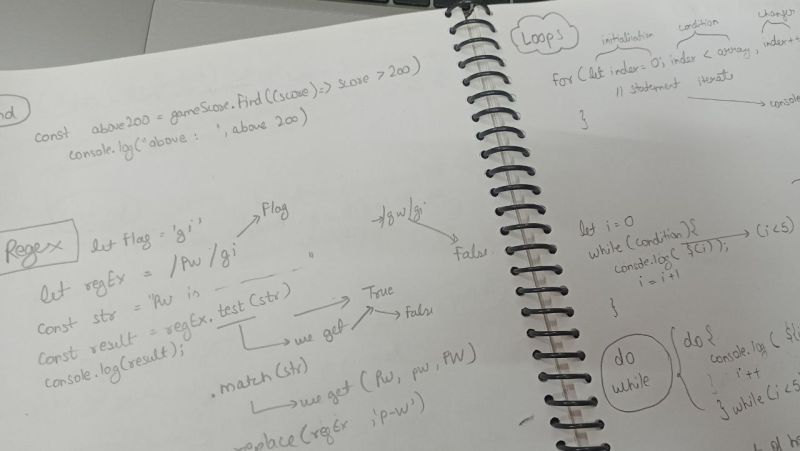 nd
const above200 = gameScore.Find((score)=> score > 200)
console.log("above : ", above 200)
Regex
let Flag = 'gi'
Flag
let regEx = /Pw/gi
/gw/gi
False
const str = "Pw is "
const result = regEx.test(str)
we get
True
False
console.log(result);
.match(str)
we get (Pw, pw, PW)
replace(regEx ,'p-w')
Loops
initialization condition changer
for (let index = 0; index < array, index++
// statement iterate
console
}
let i = 0
while (condition) {
(i<5)
console.log( ${i});
i = i+1
}
do
while
do {
console.log ( ${i
i++
} while (i <5